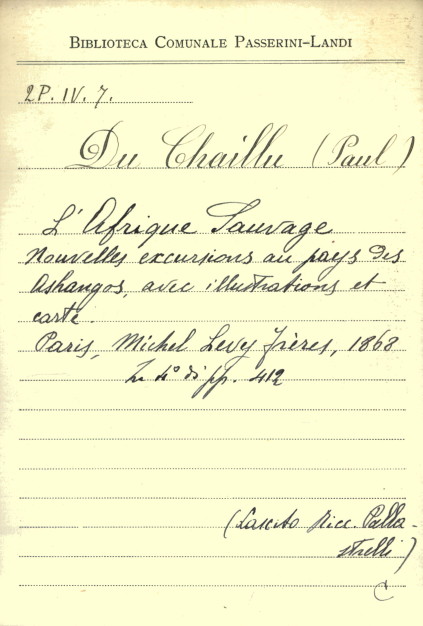 BIBLIOTECA COMUNALE PASSERINI-LANDI
2P. IV. 7.
Du Chaillu (Paul)
L'Afrique Sauvage
Nouvelles excursions au pays des
Ashangos, avec illustrations et
carte.
Paris, Michel Levy frères, 1868
In 4° di pp. 412
(Lascito Nicc. Palla-
strelli)
C